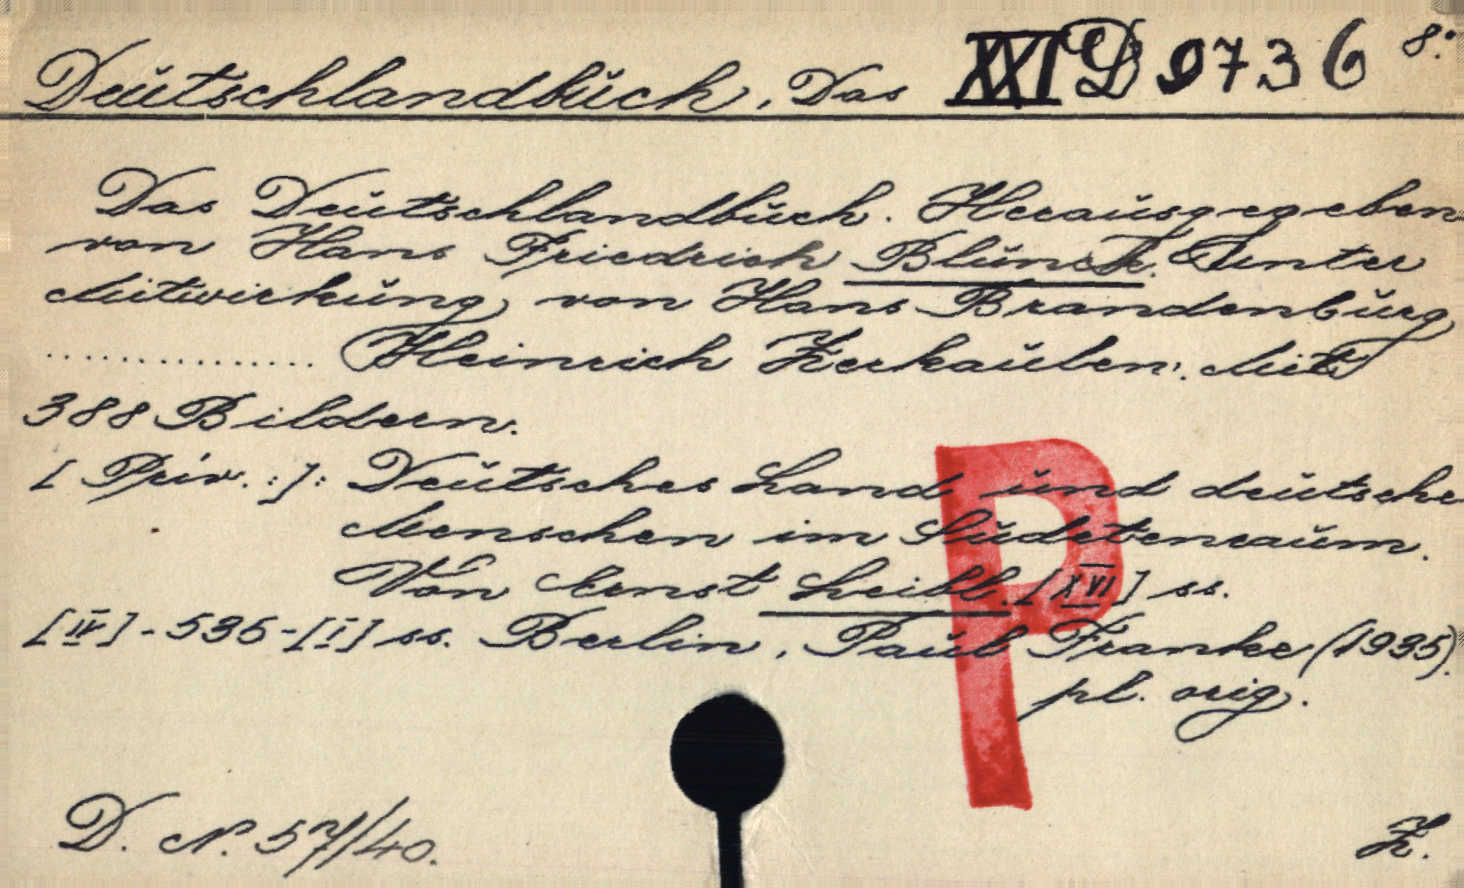 Deutschlandbuch, Das XXI D 9736 8.°
Das Deutschlandbuch. Herausgegeben
von Hans Friedrich Blunck. Unter
Mitwirkung von Hans Brandenburg
................ Heinrich Zerkaulen. Mit
388 Bildern.
[Priv.:]: Deutsches Land und deutsche
Menschen im Sudetenraum.
Von Ernst Leibl. [XVI] ss.
[IV]-535-[I] ss. Berlin, Paul Franke (1935).
pl. orig.
P
D. N. 57/40.
Z.